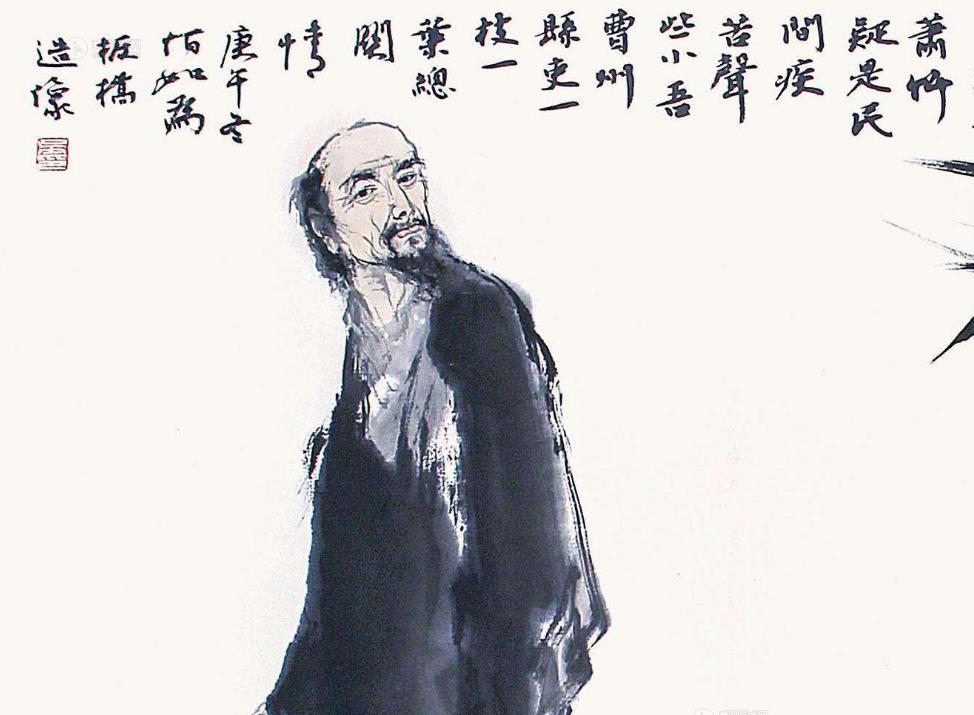 蕭竹
疑是民
間疾
苦聲
些小吾
曹州
縣吏一
枝一
葉總
關
情
庚午冬
如爲
板橋
造像